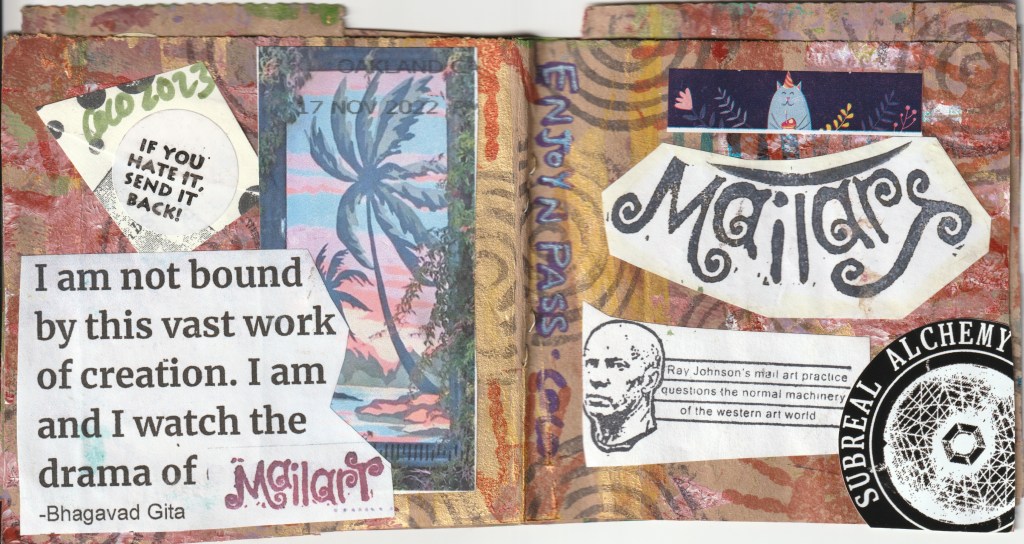 COCO 2023
IF YOU
HATE IT,
SEND IT
BACK!
OAKLAND
17 NOV 2022
I am not bound
by this vast work
of creation. I am
and I watch the
drama of
Mailart
-Bhagavad Gita
ENJOY N PASS.
Mailart
Ray Johnson's mail art practice
questions the normal machinery
of the western art world
SUBREAL ALCHEMY